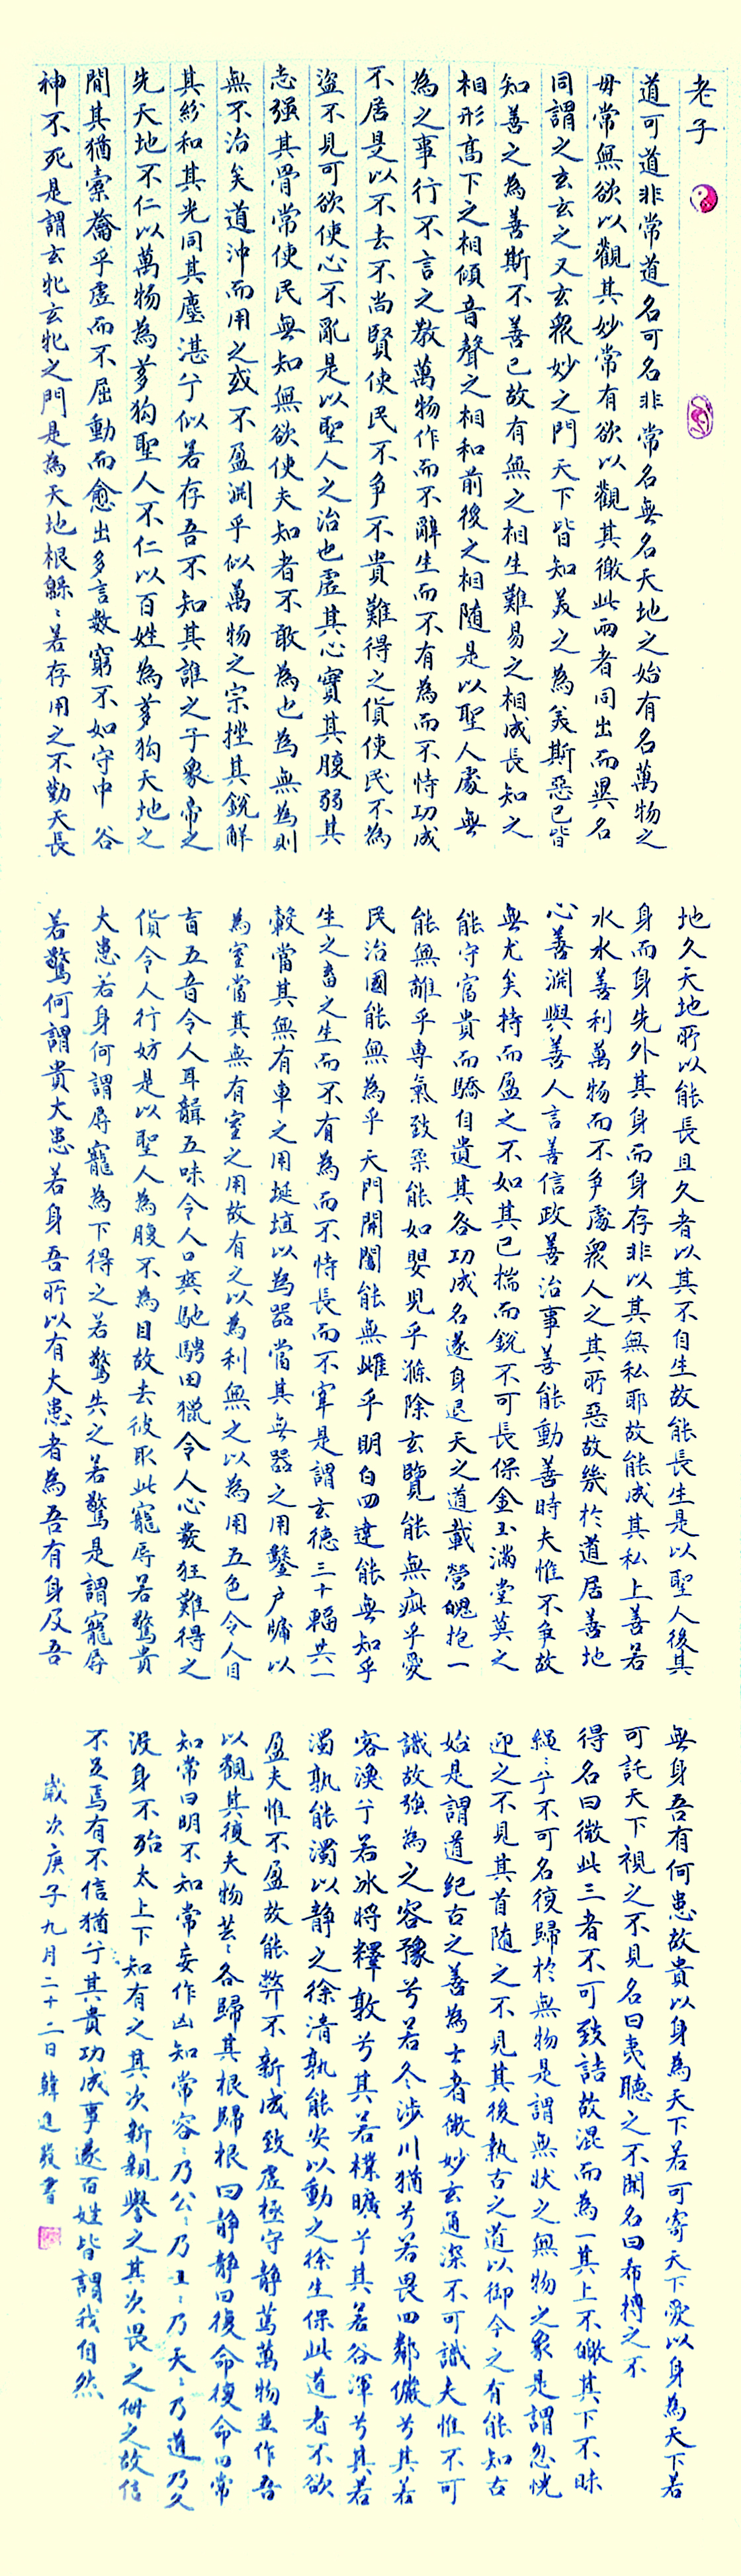 老子
道可道非常道名可名非常名無名天地之始有名萬物之
毋常無欲以觀其妙常有欲以觀其徼此兩者同出而異名
同謂之玄玄之又玄眾妙之門天下皆知美之為美斯惡已皆
知善之為善斯不善已故有無之相生難易之相成長知之
相形高下之相傾音聲之相和前後之相隨是以聖人處無
為之事行不言之教萬物作而不辭生而不有為而不恃功成
不居是以不去不尚賢使民不爭不貴難得之貨使民不為
盜不見可欲使心不亂是以聖人之治也虛其心實其腹弱其
志强其骨常使民無知無欲使夫知者不敢為也為無為則
無不治矣道沖而用之或不盈淵乎似萬物之宗挫其銳解
其紛和其光同其塵湛兮似若存吾不知其誰之子象帝之
先天地不仁以萬物為芻狗聖人不仁以百姓為芻狗天地之
間其猶橐籥乎虛而不屈動而愈出多言數窮不如守中谷
神不死是謂玄牝玄牝之門是為天地根緜〻若存用之不勤天長
地久天地所以能長且久者以其不自生故能長生是以聖人後其
身而身先外其身而身存非以其無私耶故能成其私上善若
水水善利萬物而不爭處眾人之其所惡故幾於道居善地
心善淵與善人言善信政善治事善能動善時夫惟不爭故
無尤矣持而盈之不如其已揣而銳不可長保金玉滿堂莫之
能守富貴而驕自遺其咎功成名遂身退天之道載營魄抱一
能無離乎專氣致柔能如嬰兒乎滌除玄覽能無疵乎愛
民治國能無為乎天門開闔能無雌乎明白四達能無知乎
生之畜之生而不有為而不恃長而不宰是謂玄德三十輻共一
轂當其無有車之用埏埴以為器當其無器之用鑿户牖以
為室當其無有室之用故有之以為利無之以為用五色令人目
盲五音令人耳聾五味令人口爽馳騁田獵令人心發狂難得之
貨令人行妨是以聖人為腹不為目故去彼取此寵辱若驚貴
大患若身何謂辱寵為下得之若驚失之若驚是謂寵辱
若驚何謂貴大患若身吾所以有大患者為吾有身及吾
無身吾有何患故貴以身為天下若可寄天下愛以身為天下若
可託天下視之不見名曰夷聽之不聞名曰希搏之不
得名曰微此三者不可致詰故混而為一其上不皦其下不昧
繩〻兮不可名復歸於無物是謂無狀之無物之象是謂忽恍
迎之不見其首隨之不見其後執古之道以御今之有能知古
始是謂道紀古之善為士者微妙玄通深不可識夫惟不可
識故强為之容豫兮若冬涉川猶兮若畏四鄰儼兮其若
客渙兮若冰將釋敦兮其若樸曠兮其若谷渾兮其若
濁孰能濁以静之徐清孰能安以動之徐生保此道者不欲
盈夫惟不盈故能弊不新成致虛極守静篤萬物並作吾
以觀其復夫物芸〻各歸其根歸根曰静静曰復命復命曰常
知常曰明不知常妄作凶知常容〻乃公〻乃王〻乃天〻乃道乃久
沒身不殆太上下知有之其次新親譽之其次畏之侮之故信
不足焉有不信猶兮其貴功成事遂百姓皆謂我自然
歲次庚子九月二十二日韓進發書